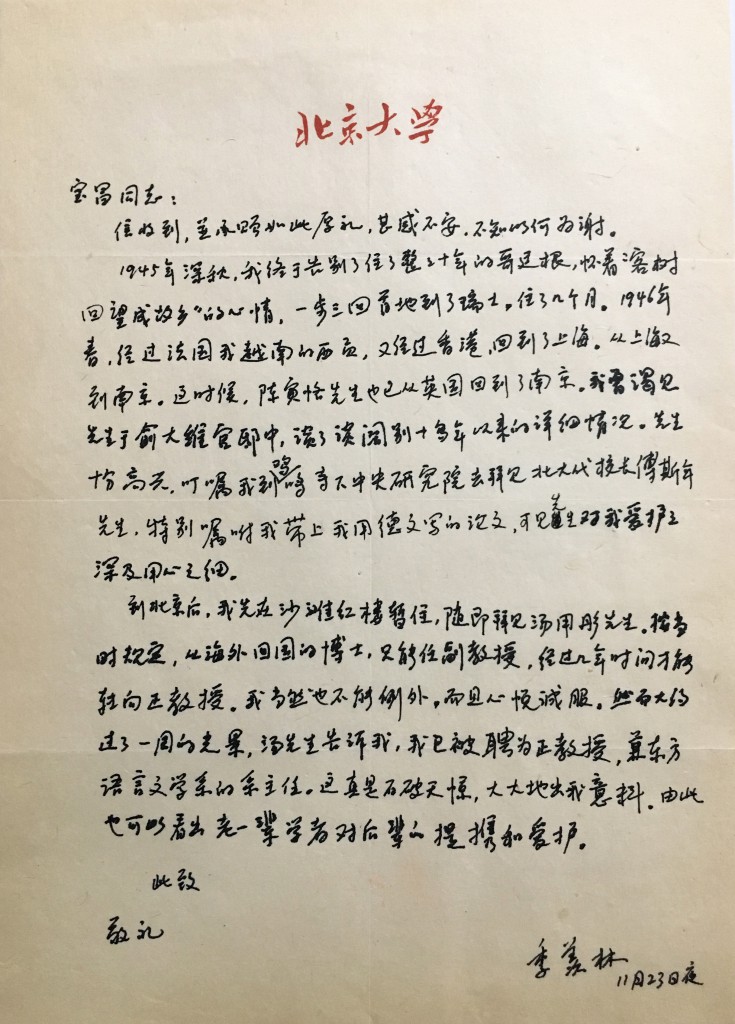 北京大学
宝昌同志：
信收到，并承赐如此厚礼，甚感不安，不知以何为谢。
1945年深秋，我终于告别了住了整整十年的哥廷根，怀着“客树
回望成故乡”的心情，一步三回首地到了瑞士。住了几个月。1946年
春，经过法国和越南的西贡，又经过香港，回到了上海。从上海又
到南京。这时候，陈寅恪先生也已从英国回到了南京。我曾谒见
先生于俞大维官邸中，谈了谈阔别十多年以来的详细情况。先生
十分高兴，叮嘱我到鸡鸣寺下中央研究院去拜见北大代校长傅斯年
先生，特别嘱咐我带上我用德文写的论文，可见先生对我爱护之
深及用心之细。
到北京后，我先在沙滩红楼暂住，随即拜见汤用彤先生。按当
时规定，从海外回国的博士，只能任副教授，经过几年时间才能
转向正教授。我当然也不能例外，而且心悦诚服。然而大约
过了一周的光景，汤先生告诉我，我已被聘为正教授，兼东方
语言文学系的系主任。这真是石破天惊，大大地出我意料。由此
也可以看出老一辈学者对后辈的提携和爱护。
此致
敬礼
季羡林
11月23日夜